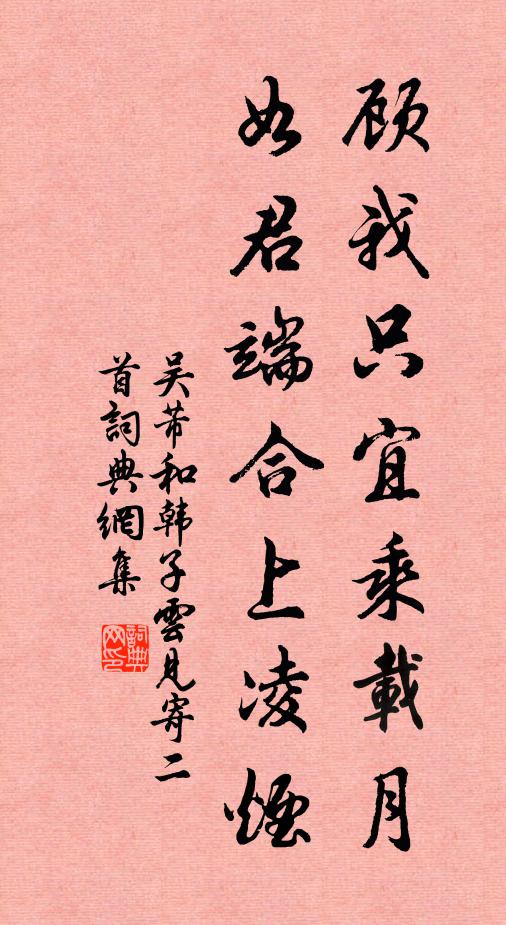 顾我只宜乘載月
如君端合上凌煙
吴芾和韩子雲見寄二
首詞典網集
詞典
网印